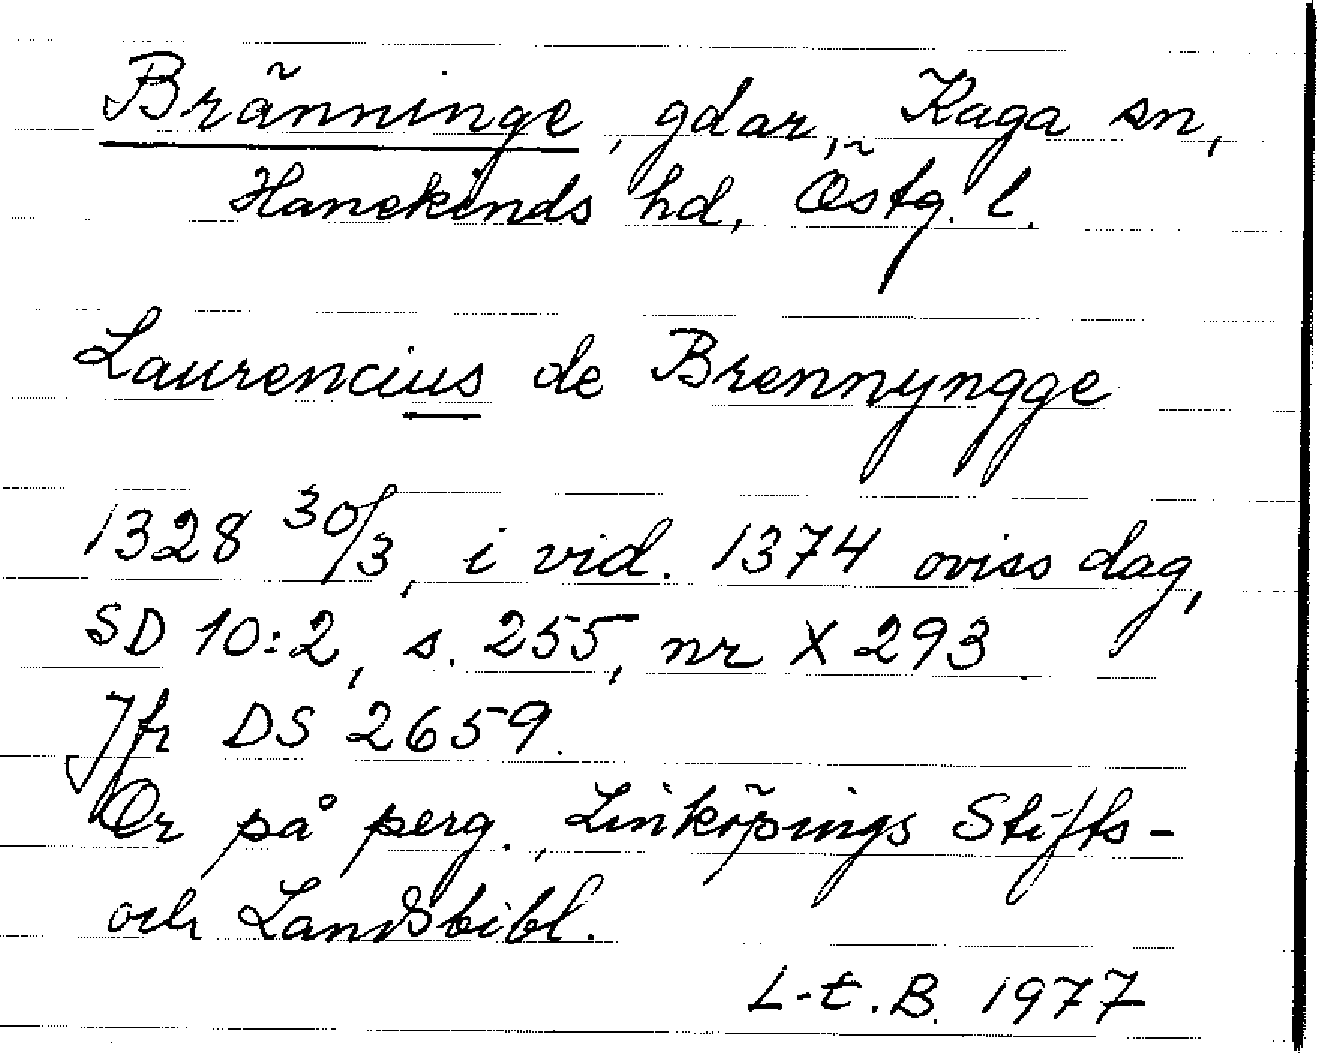 Bränninge, gdar, Kaga sn,
Hanekinds hd, Östg. l.
Laurencius de Brennyngge
1328 30/3, i vid. 1374 oviss dag,
SD 10:2, s. 255, nr X 293.
Jfr DS 2659.
Or på perg., Linköpings Stifts-
och Landsbibl.
L-t. B. 1977